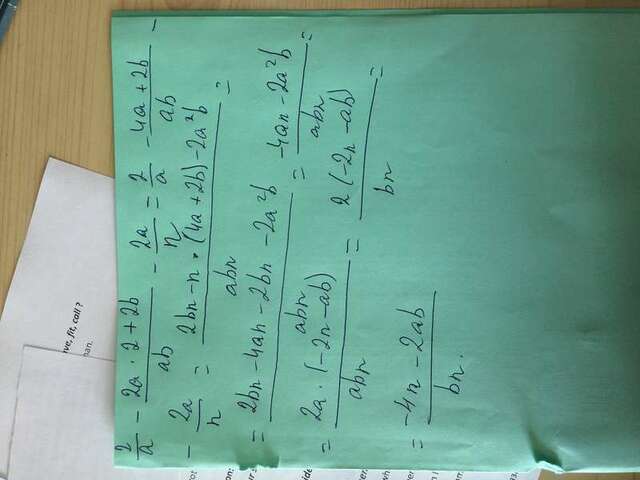 ve, fit, call ?
an.
2/a - (2a · 2 + 2b)/ab - 2a/n = 2/a - (4a + 2b)/ab -
- 2a/n = (2bn - n · (4a + 2b) - 2a²b)/abn =
= (2bn - 4an - 2bn - 2a²b)/abn = (-4an - 2a²b)/abn =
= (2a · (-2n - ab))/abn = (2(-2n - ab))/bn =
= (-4n - 2ab)/bn.